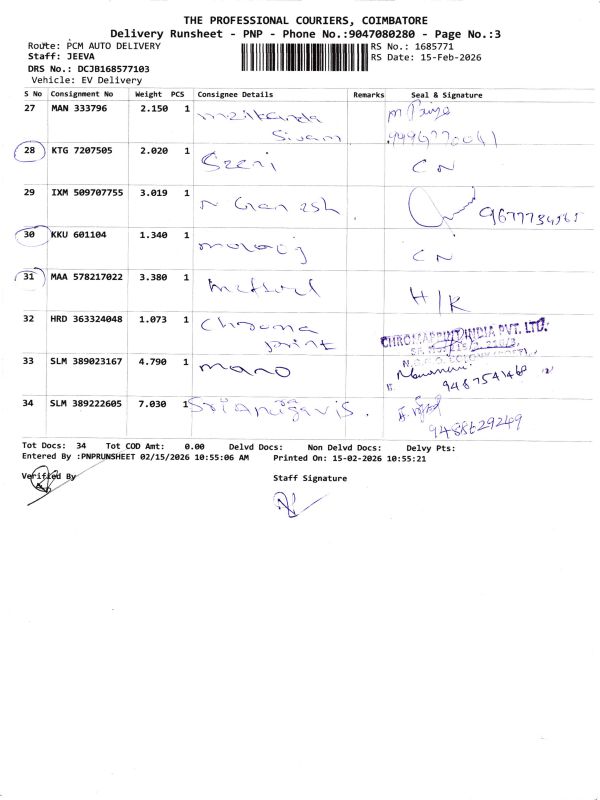 THE PROFESSIONAL COURIERS, COIMBATORE
Delivery Runsheet - PNP - Phone No.:9047080280 - Page No.:3
Route: PCM AUTO DELIVERY
RS No.: 1685771
Staff: JEEVA
RS Date: 15-Feb-2026
DRS No.: DCJB168577103
Vehicle: EV Delivery
S No Consignment No Weight PCS Consignee Details Remarks Seal & Signature
27 MAN 333796 2.150 1
Sivam
28 KTG 7207505 2.020 1 CN
29 IXM 509707755 3.019 1 N Ganesh
30 KKU 601104 1.340 1 CN
31 MAA 578217022 3.380 1 H/K
32 HRD 363324048 1.073 1 Chroma
print
CHROMAPRINT INDIA PVT. LTD.
33 SLM 389023167 4.790 1 mano
9487541460
34 SLM 389222605 7.030 1
9488629249
Tot Docs: 34 Tot COD Amt: 0.00 Delvd Docs: Non Delvd Docs: Delvy Pts:
Entered By :PNPRUNSHEET 02/15/2026 10:55:06 AM Printed On: 15-02-2026 10:55:21
Verified By
Staff Signature